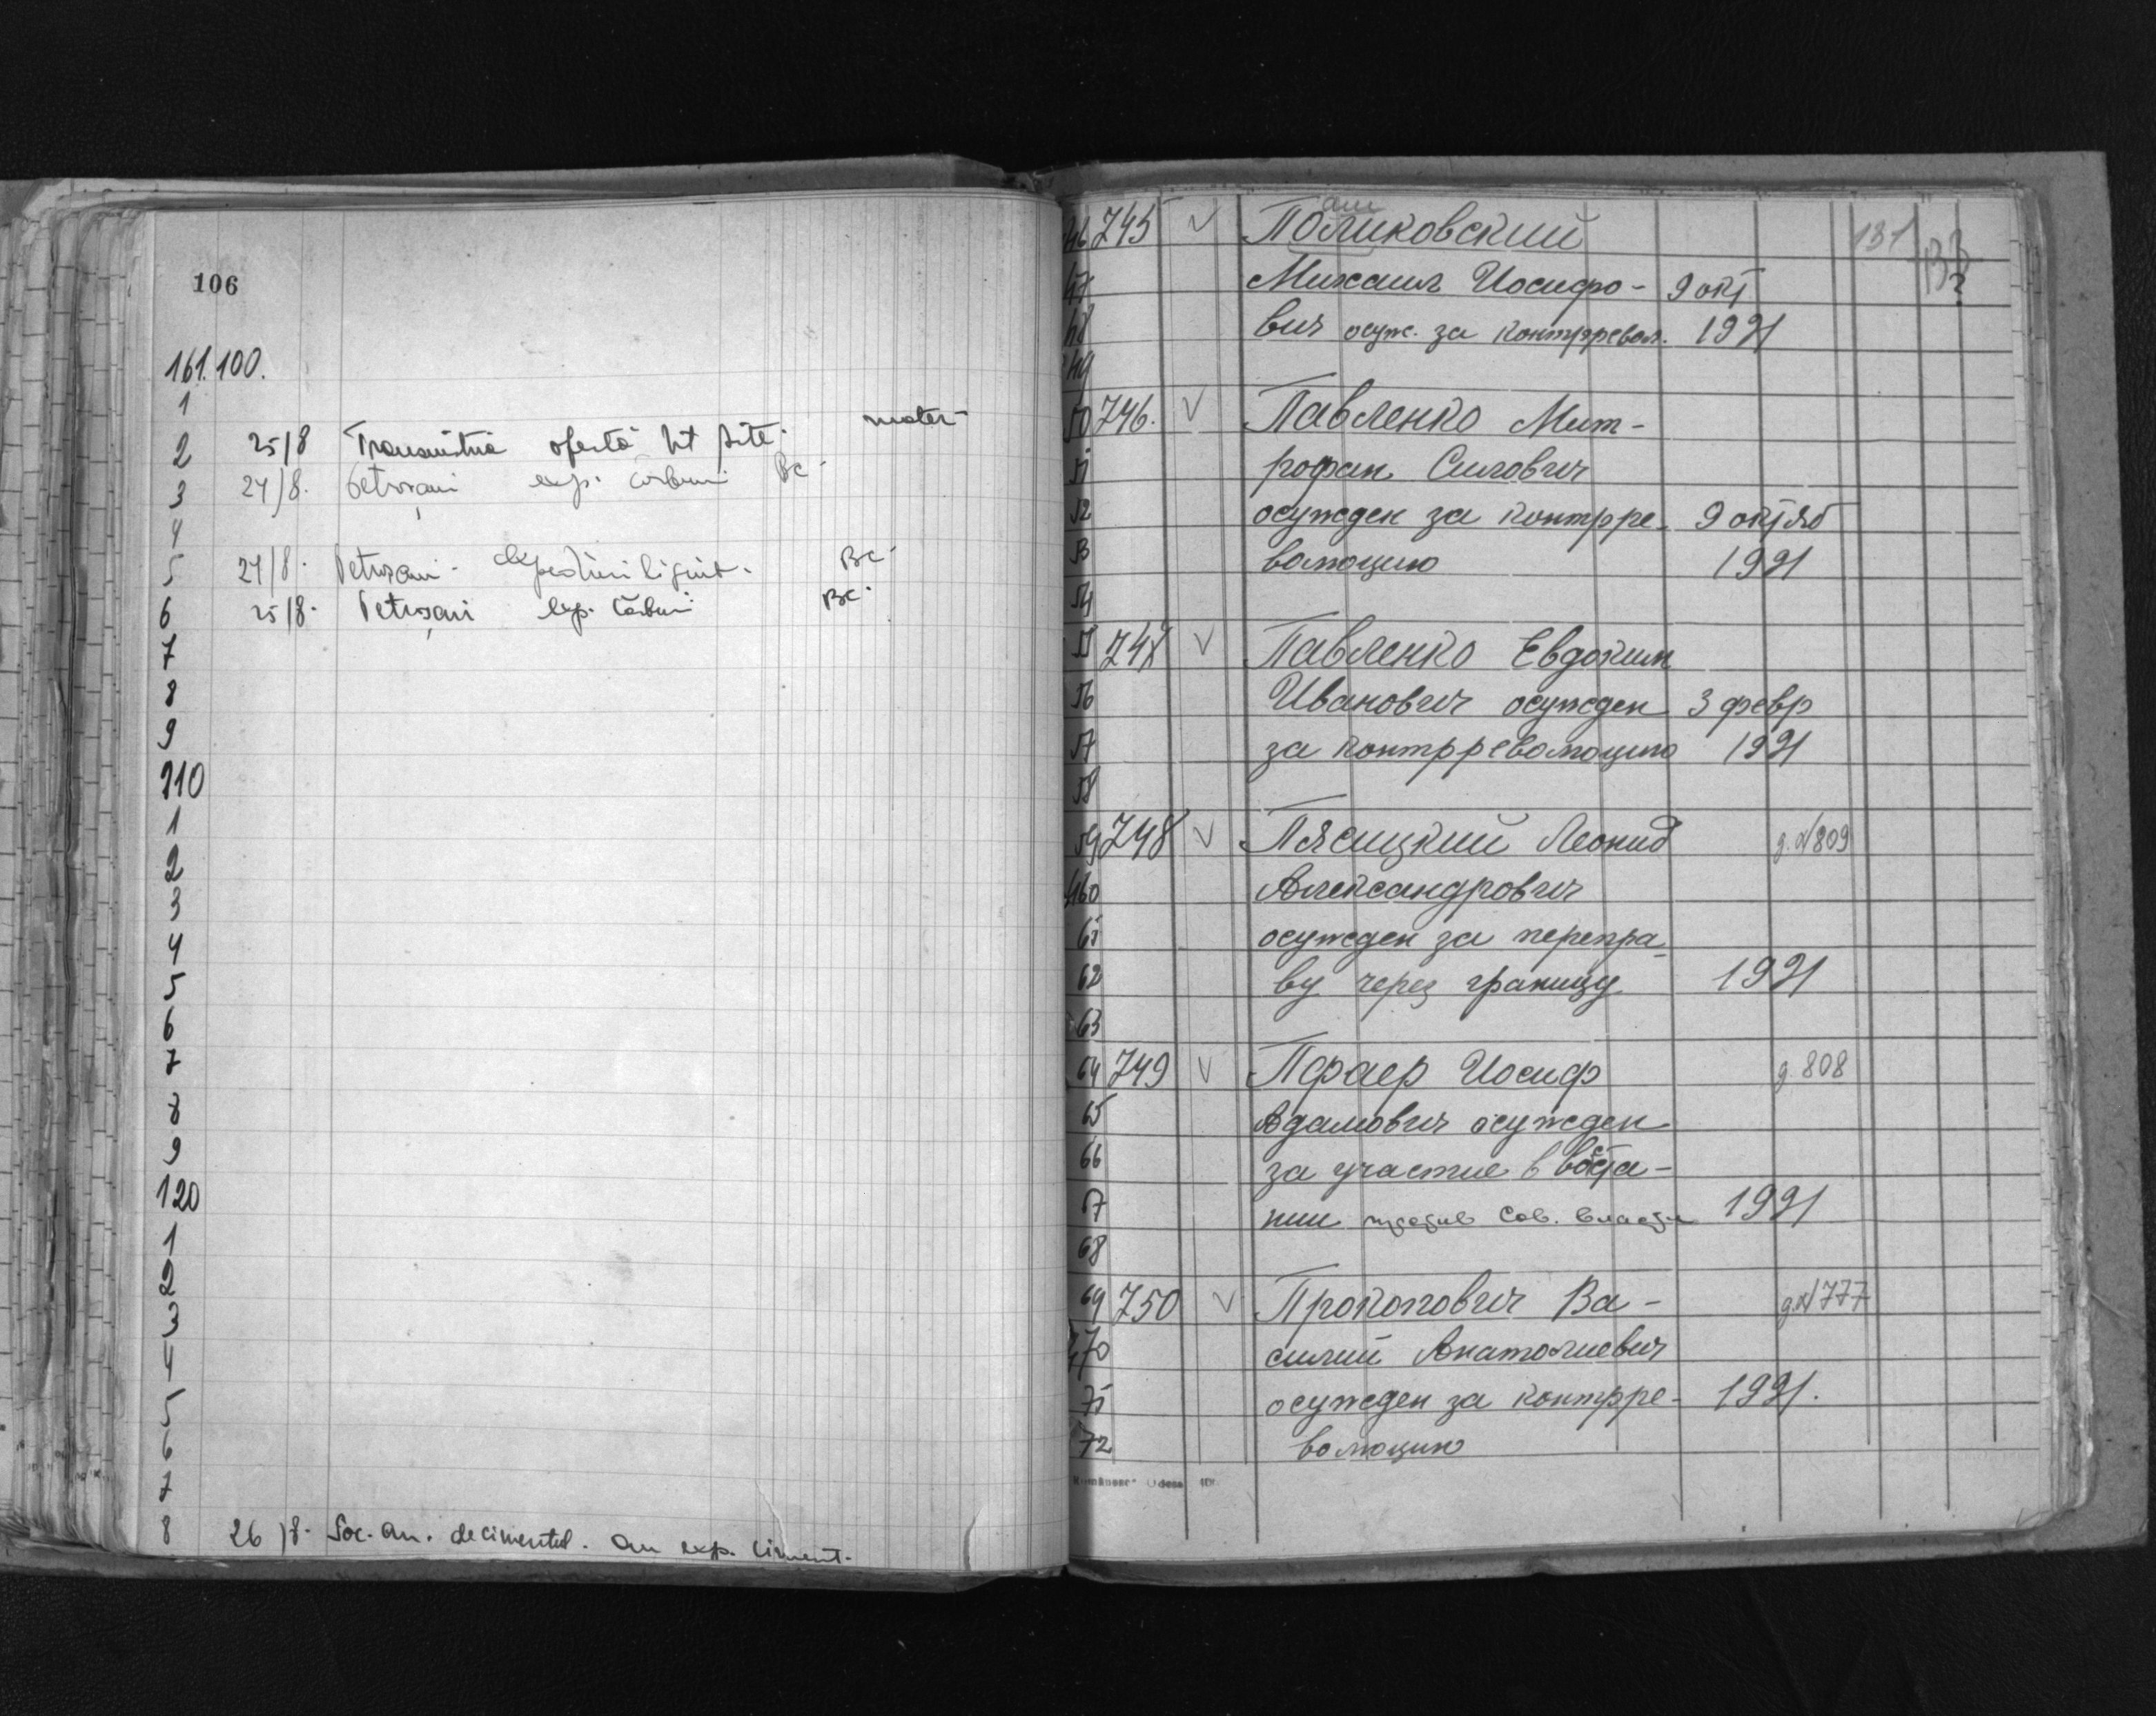 106
161.100.
1
2 25/8 Transmitia ofertă pt site. mater-
3 24/8. Petroșani exp. cărbuni Bc-
4
5 24/8. Petroșani- expedțiuni lignit. Bc-
6 25/8. Petroșani exp. cărbuni Bc.
7
8
9
110
1
2
3
4
5
6
7
8
9
120
1
2
3
4
5
6
7
8 26/8. Soc. An. de cimentul. an exp. ciment.
131
46 745 V Поликовский
али
47 Михаил Иосифо- 9 окт
48 вич осуж. за контрревол. 1921
49
50 746. V Павленко Мит-
51 рофан Силович
52 осужден за контрре- 9 октяб
53 волюцию 1921
54
55 747 V Павленко Евдоким
56 Иванович осужден 3 февр
57 за контрреволюцию 1921
58
59 748 V Пясицкий Леонид д.№809
460 Александрович
61 осужден за перепра-
62 ву через границу 1921
63
64 749 V Пфаер Иосиф д.808
65 Адамович осужден
66 за участие в воста-
67 нии против Сов. власти 1921
68
69 750 V Прокопович Ва- д.№777
470 силий Анатолиевич
71 осужден за контрре- 1921.
72 волюцию
Românesc" Odesa